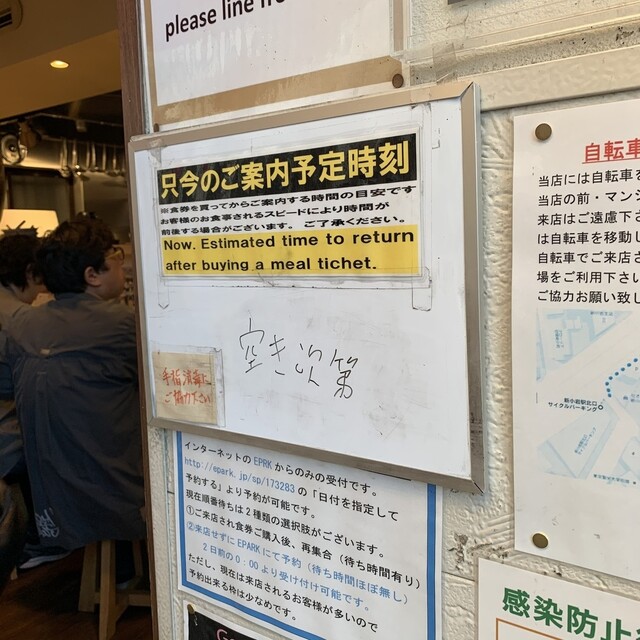 please line
只今のご案内予定時刻
※食券を買ってからご案内する時間の目安です
お客様のお食事されるスピードにより時間が
前後する場合がございます。ご了承ください。
Now. Estimated time to return
after buying a meal tichet.
空き次第
手指消毒に
ご協力下さい
インターネットのEPRKからのみの受付です。
http://epark.jp/sp/173283 の「日付を指定して
予約する」より予約が可能です。
現在順番待ちは2種類の選択肢がございます。
①ご来店され食券ご購入後、再集合(待ち時間有り)
②来店せずにEPARKにて予約(待ち時間ほぼ無し)
2日前の0:00より受け付け可能です。
ただし、現在は来店されるお客様が多いので
予約出来る枠は少なめです。
自転車
当店には自転車を
当店の前・マンシ
来店はご遠慮下さ
は自転車を移動し
自転車でご来店さ
場をご利用下さい
ご協力お願い致し
新小岩駅北口
サイクルパーキング
感染防止